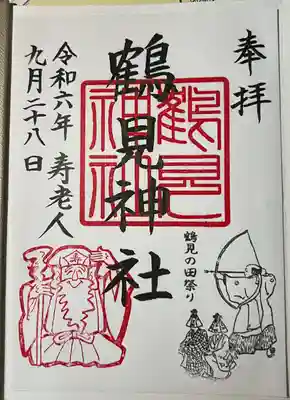 奉拝
鶴見神社
鶴見
神社
鶴見の田祭り
寿老人
令和六年
九月二十八日